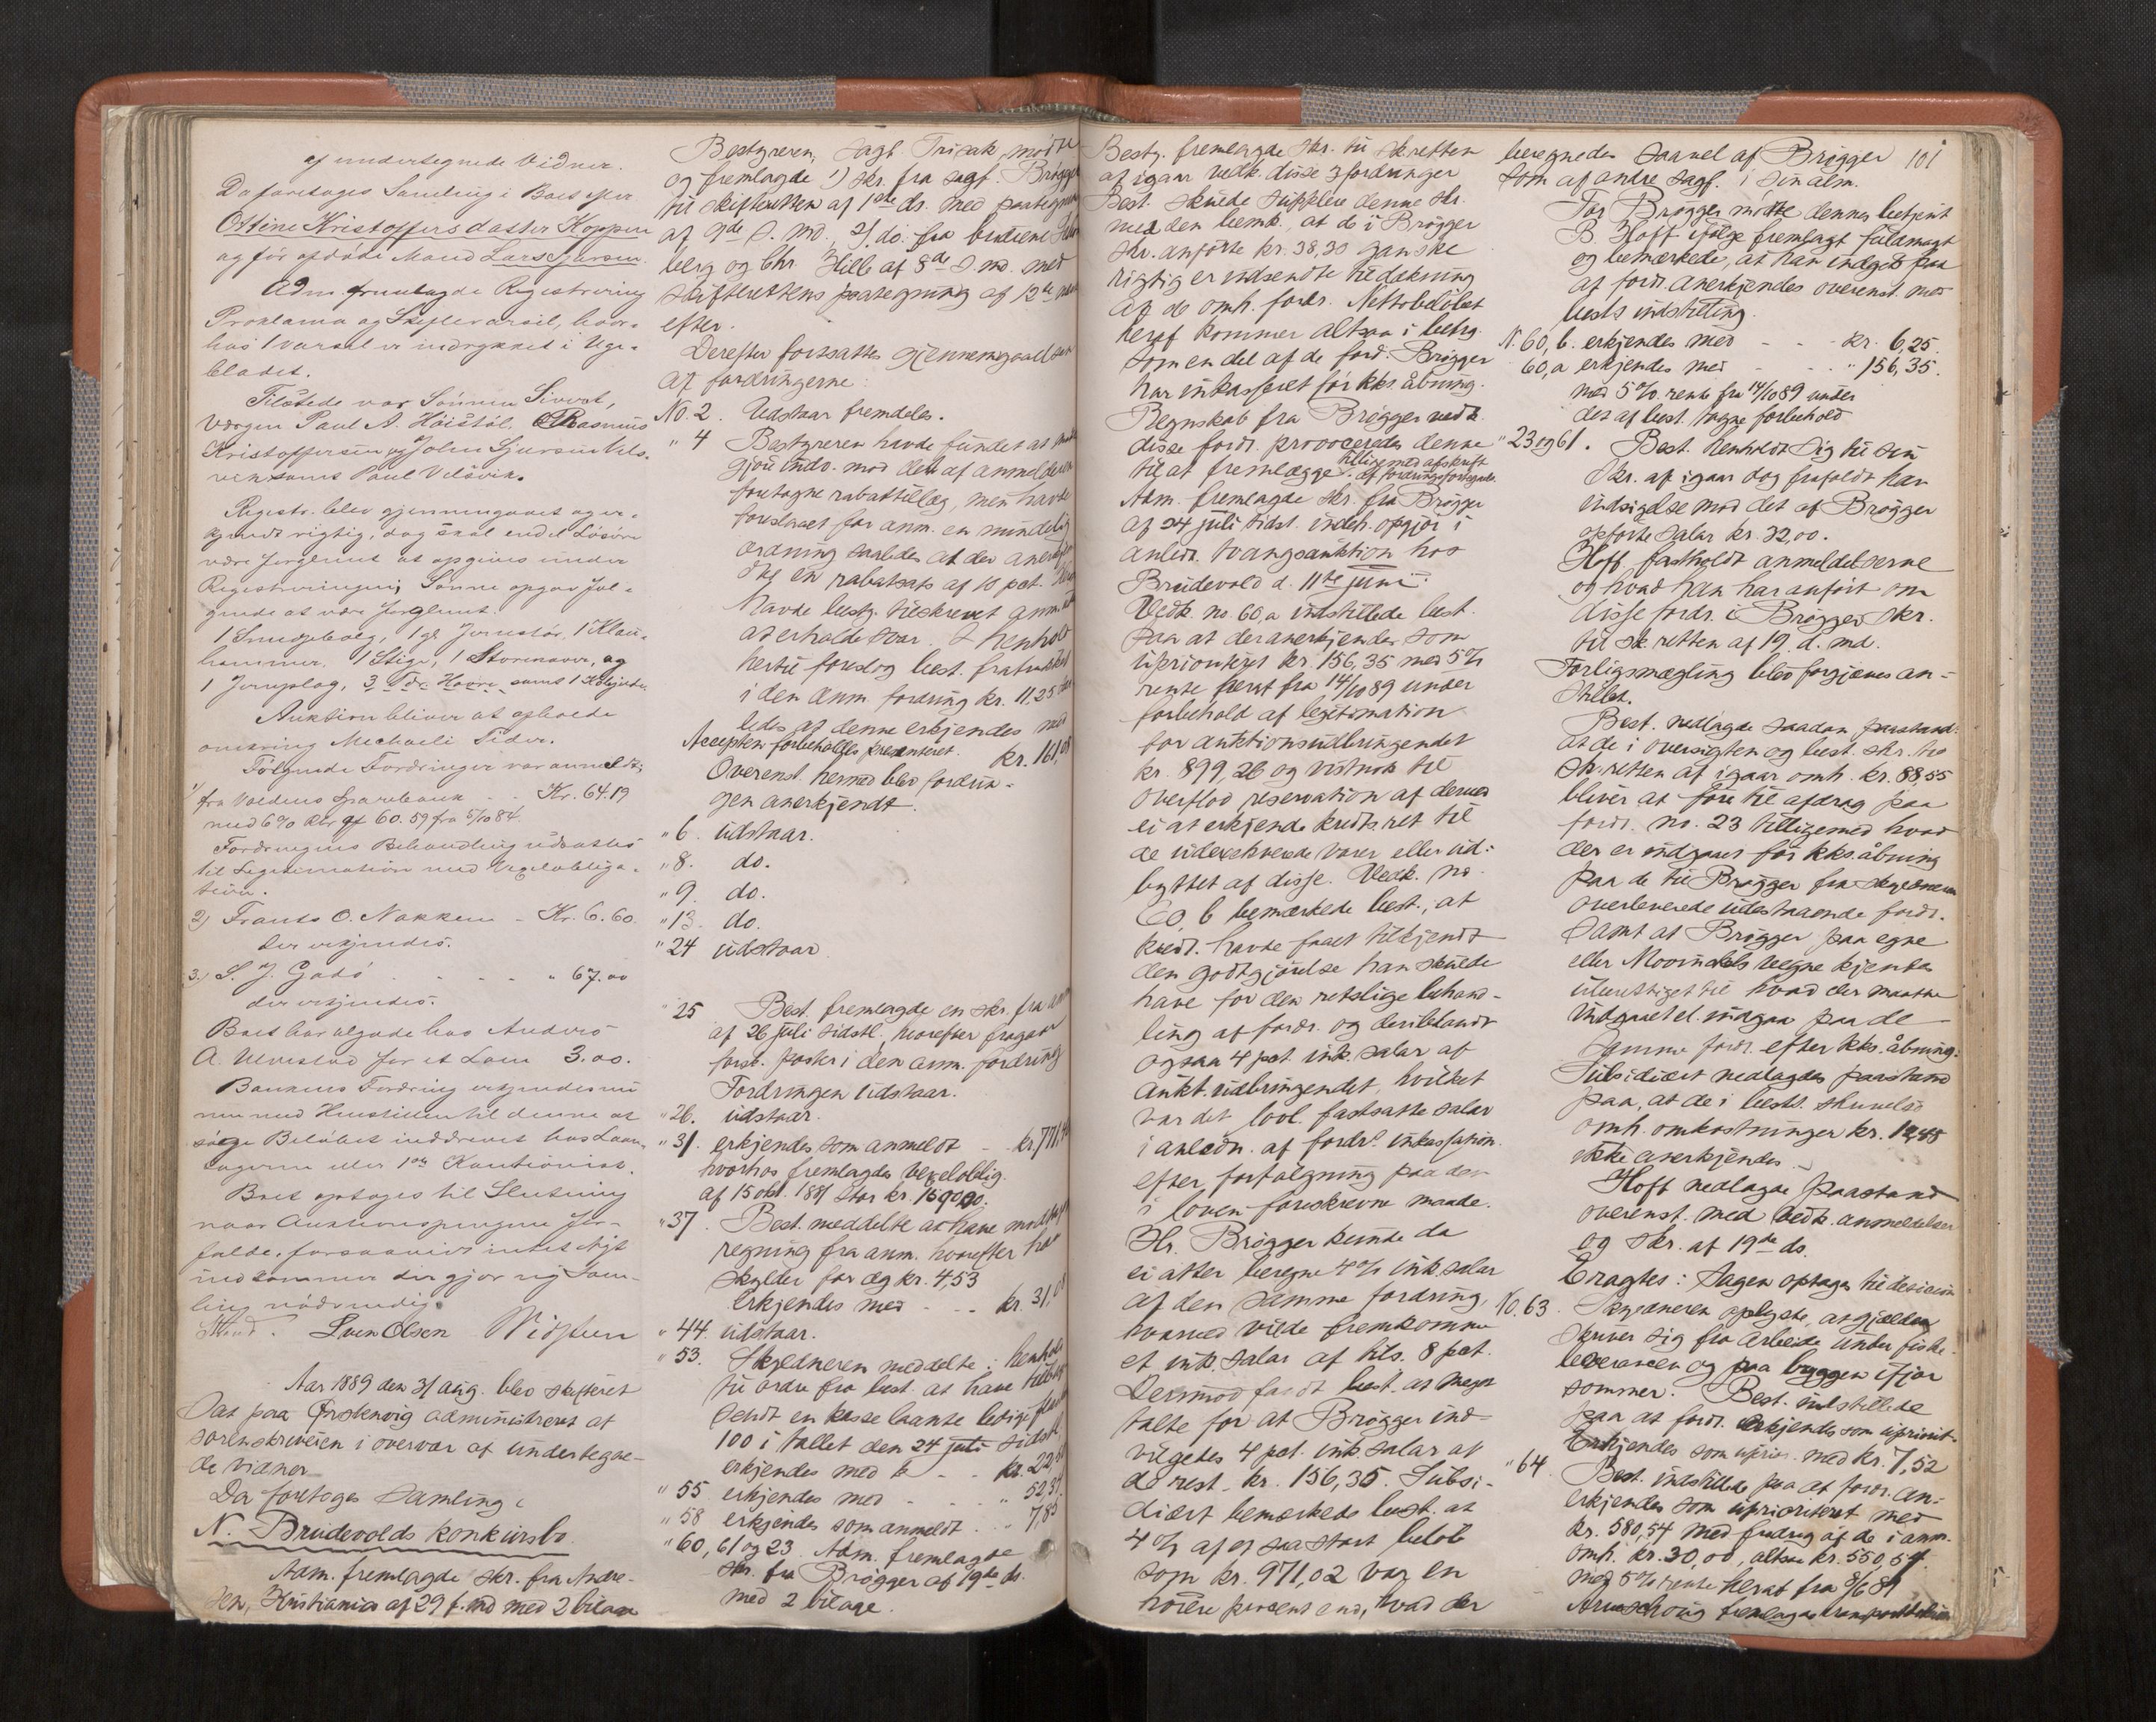 af undertegnede Vidner.
Da foretoges Samling i Boet efter
Oltine Kristoffersdatter Koppen
og før afdøde Mand Lars Sjursen.
Adm. fremlagde Registrering
Proklama og Skiftevarsel, hvor-
hos 1 Varsel er indrykket i Uge-
bladet.
Tilstede var Sønnen Sivert,
Værgen Paul A. Høistøl, Rasmus
Kristoffersen og John Sjursen Vels-
vik samt Paul Velsvik.
Registr. blev gjennemgaaet og er-
kjendt rigtig, dog skal endel Løsøre
være forglemt at opgives under
Registreringen; Sønne opgav føl-
gende at være forglemt.
1 Smedjebelg, 1 gl. Jernstør, 1 Klau-
hammer, 1 Stige, 1 Storenaver, og
1 Jernslag, 3 Tdr. Havre samt 1
Auktion bliver at afholde
omkring Michaeli Tider.
Følgende Fordringer var anmeldt;
1) fra Voldens Sparebank Kr. 64.19
med 6% Rtr af 60.59 fra 5/10 84.
Fordringens Behandling udsattes
til Legitimation med Vexelobliga-
tion.
2) Frants O. Nakken - Kr. 6.60
der erkjendes.
3.) S. J. Gadø . - - - " 67.00
der erkjendes.
Boet har tilgode hos Anders
A. Ulvestad for et Lam 3.00.
Bankens Fordring erkjendes nu
men med Henstillen til denne at
søge Beløbet inddrevet hos Laan-
tageren eller 1ste Kautionist.
Boet optages til Slutning
naar Auktionspengene for-
falde, forsaavidt intet Nyt
indkommer der gjør ny Sam-
ling nødvendig.
Sven Olsen
Aar 1889 den 31 aug. blev skifteret
sat paa Ørstenvig administreret af
sorenskriveren i overvær af undertegne-
de vidner
Da foretoges Samling i
N. Brudevolds konkursbo.
Adm. fremlagde skr. fra Andre-
sen, Kristiania af 29 f. md med 2 bilage
Bestyreren, sagf. Trisak, mødte
og fremlagde 1) skr. fra sagf. Brøgger
til skifteretten af 1ste ds. med paategning
af 9de d. md., 2) do. fra brødrene
berg og Chr. Hille af 8de d. md. med
skifterettens paategning af 12te
efter.
Derefter fortsattes gjennemgaaelsen
af fordringerne:
No. 2. Udstaar fremdeles.
" 4 Bestyreren havde fundet at
gjøre inds. mod den af anmelderen
foretagne rabattillæg, men havde
foreslaaet for anm. en mindelig
ordning saaledes at der anerkjendtes
en rabatsats af 10 pct.
havde besty. tilskrevet anm.
at erholde svar. I henhold
hertil foreslog best. fratrukket
i den anm. fordring kr. 11,25
ledes at denne erkjendes med
Accepten forbeholdes præsenteret. kr. 161,08
Overenst. hermed blev fordrin-
gen anerkjendt.
" 6. udstaar.
" 8. do.
" 9. do.
" 13. do.
" 24 udstaar
" 25 Best. fremlagde en skr. fra anm
af 26 juli sidstl., hvorefter fragaar
forsk. poster i den anm. fordring
Fordringen udstaar.
" 26. udstaar.
" 31. erkjendes som anmeldt - kr.
hvorhos fremlagdes vexeloblig.
af 15 okt. 1887 stor kr. 1690,00.
" 37. Best. meddelte at have modtaget
regning fra anm. hvorefter han
skylder for æg kr. 4,53
Erkjendes med - - - kr. 31,08
" 44. udstaar.
" 53. Skyldneren meddelte: i henhold
til ordre fra best. at have tilbage
sendt en kasse laante ledige flasker
100 i tallet den 24 juli sidstl.
erkjendes med - - kr. 22,
" 55 erkjendes med - - - " 52,31.
" 58 erkjendes som anmeldt . . " 7,85
" 60, 61 og 23. Adm. fremlagde
skr. fra Brøgger af 19de ds.
med 2 bilage.
Besty. fremlagde skr. til skretten
af igaar vedk. disse 3 fordringer
Best. skulde supplere denne skr.
med den bemk. at de i Brøgger
skr. anførte kr. 38,30 ganske
rigtig er indsendte til dækning
af de omh. fordr. Nettobeløbet
heraf kommer altsaa i betrg.
som en del af de ford. Brøgger
har inkasseret før kks. åbning.
Regnskab fra Brøgger vedk.
disse fordr. provoceredes denne
til at fremlægge tilligemed afskrift af fordringsfortegnelse.
Adm. fremlagde skr. fra Brøgger
af 24 juli sidstl. indeh. opgjør i
anledn. tvangsauktion hos
Brudevold d. 11te juni.
Vedk. no 60,a indstillede best.
paa at der anerkjendes som
uprioriteret kr. 156,35 med 5%
rente heraf fra 14/10 89 under
forbehold af legitimation
for auktionsudbringendet
kr. 899,26 og vistnok til
overflod reservation af derved
ei at erkjende kredits ret til
de udexekverede varer eller ud-
byttet af disse. Vedk. no.
60,b bemærkede best., at
kredt. havde faaet tilkjendt
den godtgjørelse han skulde
have for den retslige behand-
ling af fordr. og deriblandt
ogsaa 4 pct. ink. salar af
aukt. udbringendet, hvilket
var det lovl. fastsatte salar
i anledn. af fordr.s inkassation
efter forfølgning paa den
i loven foreskrevne maade.
Hr. Brøgger kunde da
ei atter beregne 4% ink. salar
af den samme fordring,
hvorved vilde fremkomme
et ink. salar af tils. 8 pct.
Derimod fandt best. at meget
talte for at Brøgger ind-
vilgedes 4 pct. ink. salar af
de rest. kr. 156,35. Subsi-
diært bemærkede best. at
4% af et saa stort beløb
som kr. 971,02 var en
høiere procent end, hvad der
101
beregnedes saavel af Brøgger
som af andre sagf. i sin alm.
For Brøgger mødte dennes betjent
B. Hoff ifølge fremlagt fuldmagt
og bemærkede, at han indgik paa
at fordr. anerkjendes overenst. med
bests indstilling.
N. 60,b. erkjendes med - - - kr. 6,25.
60,a erkjendes med - - " 156,35.
med 5% rente fra 14/10 89 under
det af best. tagne forbehold
" 23 og 61. Best. henholdt sig til sin
skr. af igaar dog frafaldt han
indsigelse mod det af Brøgger
opførte salar kr. 32,00.
Hoff fastholdt anmeldelserne
og hvad han har anført om
disse fordr. i Brøggers skr.
til sk.retten af 19 d. md.
Forligsmægling blev forgjæves an-
stillet.
Best. nedlagde saadan paastand:
at de i oversigten og best. skr. til
sk.retten af igaar omh. kr. 88,55
bliver at føre til afdrag paa
fordr. no. 23 tilligemed hvad
der er indgaaet før kks. åbning
paa de til Brøgger fra skyldneren
overleverede udestaaende fordr.
samt at Brøgger paa egne
eller Mowinckels vegne kjendes
uberettiget til hvad der maatte
indgaaet el. indgaa paa de
samme fordr. efter kks. åbning.
Subsidiært nedlagdes paastand
paa, at de i bests. skrivelse
omh. omkostninger kr. 12,45
ikke anerkjendes.
Hoff nedlagde paastand
overenst. med vedk. anmeldelser
og skr. af 19de ds.
Eragtes: Sagen optages til decision
No. 63. Skyldneren oplyste, at gjælden
skriver sig fra arbeide under fiske-
leverancen og paa bryggen ifjor
sommer. Best. indstillede
paa at fordr. erkjendes som upriorit.
Erkjendes som uprior. med kr. 7,52
" 64. Best. indstillede paa at fordr. an-
erkjendes som uprioriteret med
kr. 580,54 med fradrag af de i anm.
omh. kr. 30,00, altsaa kr. 550,54
med 5% rente heraf fra 8/6 89